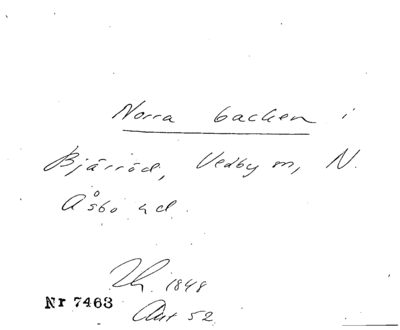 Norra backen i
Bjärröd, Vedby sn, N.
Åsbo hd.
1848
Nr 7463
Akt 52